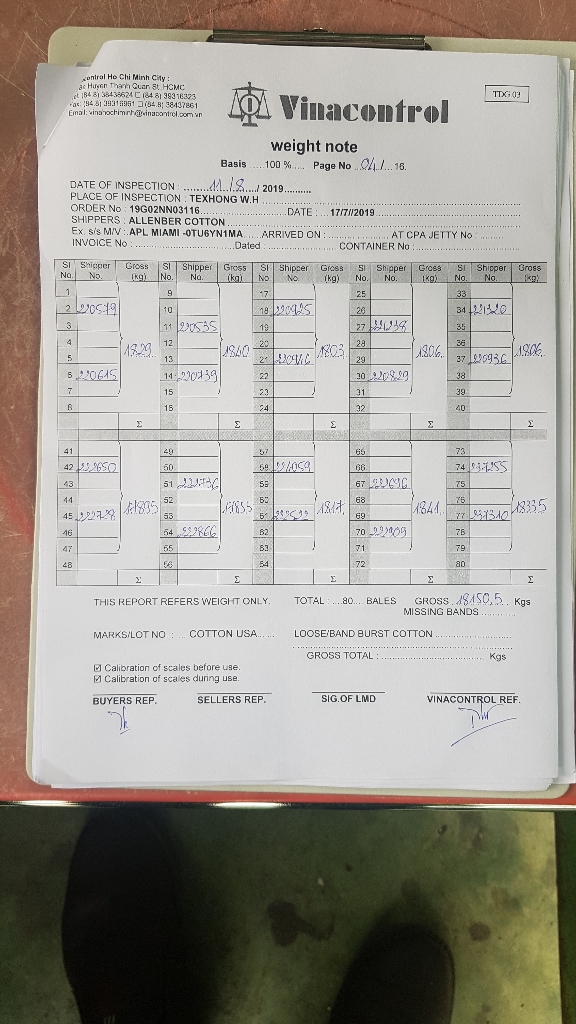 ontrol Ho Chi Minh City :
Huyen Thanh Quan St. HCMC
(84.8) 38438624 □ (84.8) 39316323
Fax: (84.8) 39316961 □ (84.8) 38437861
Email: vinahochiminh@vinacontrol.com.vn
Vinacontrol
TDG 03
weight note
Basis .....100 %..... Page No .04./ ...16.
DATE OF INSPECTION : ........11../8..../ 2019..........
PLACE OF INSPECTION : TEXHONG W.H
ORDER No : 19G02NN03116 DATE : 17/7//2019
SHIPPERS : ALLENBER COTTON
Ex. s/s M/V : APL MIAMI -0TU6YN1MA ARRIVED ON : AT CPA JETTY No :
INVOICE No : Dated CONTAINER No :
SI No. Shipper No. Gross (kg) SI No. Shipper No. Gross (kg) SI No. Shipper No. Gross (kg) SI No. Shipper No. Gross (kg) SI No. Shipper No. Gross (kg)
1 9 17 25 33
2 220579 10 18 220925 26 34 221320
3 11 220535 19 27 221238 35
4 1829 12 1840 20 1803 28 1806 36 1806
5 13 21 220946 29 37 220936
6 220615 14 220739 22 30 220829 38
7 15 23 31 39
8 16 24 32 40
Σ Σ Σ Σ Σ
41 49 57 65 73
42 222650 50 58 221059 66 74 237255
43 51 222736 59 67 222696 75
44 52 60 1817 68 1841 76 1833.5
45 222728 53 61 222522 69 77 237310
46 54 222866 62 70 222909 78
47 55 63 71 79
48 56 64 72 80
Σ Σ Σ Σ Σ
THIS REPORT REFERS WEIGHT ONLY. TOTAL : ...80... BALES GROSS .18150,5. Kgs
MISSING BANDS
MARKS/LOT NO : ... COTTON USA..... LOOSE/BAND BURST COTTON
GROSS TOTAL : Kgs
☑ Calibration of scales before use.
☑ Calibration of scales during use.
BUYERS REP. SELLERS REP. SIG.OF LMD VINACONTROL REF.